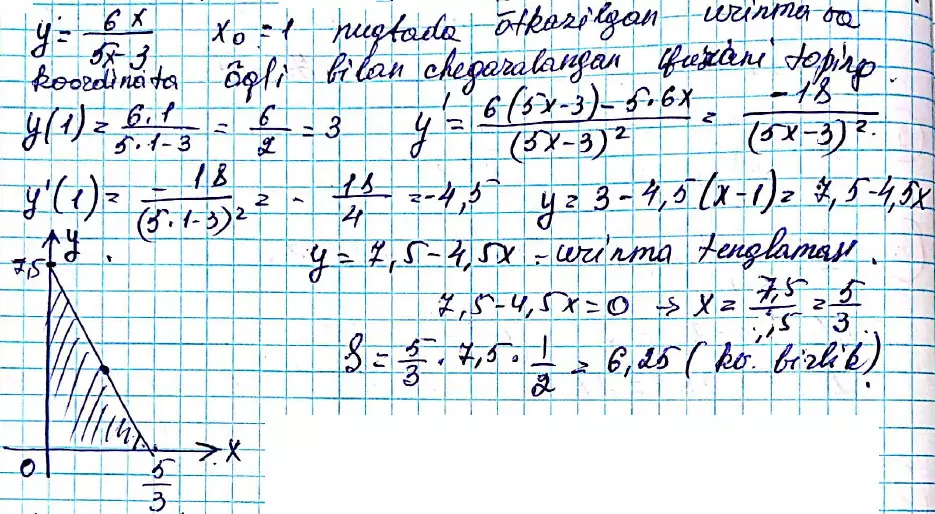 y = 6x / 5x-3 x₀ = 1 nuqtada ōtkazilgan urinma va
koordinata ōqli bilan chegaralangan yuzani toping.
y(1) = 6·1 / 5·1-3 = 6/2 = 3 y' = 6(5x-3)-5·6x / (5x-3)² = -18 / (5x-3)².
y'(1) = -18 / (5·1-3)² = - 18/4 = -4,5 y = 3-4,5(x-1) = 7,5-4,5x
y = 7,5-4,5x - urinma tenglamasi.
7,5-4,5x=0 → x = 7,5/4,5 = 5/3
S = 5/3 · 7,5 · 1/2 = 6,25 (kv. birlik).
y
7,5
0
5/3
x